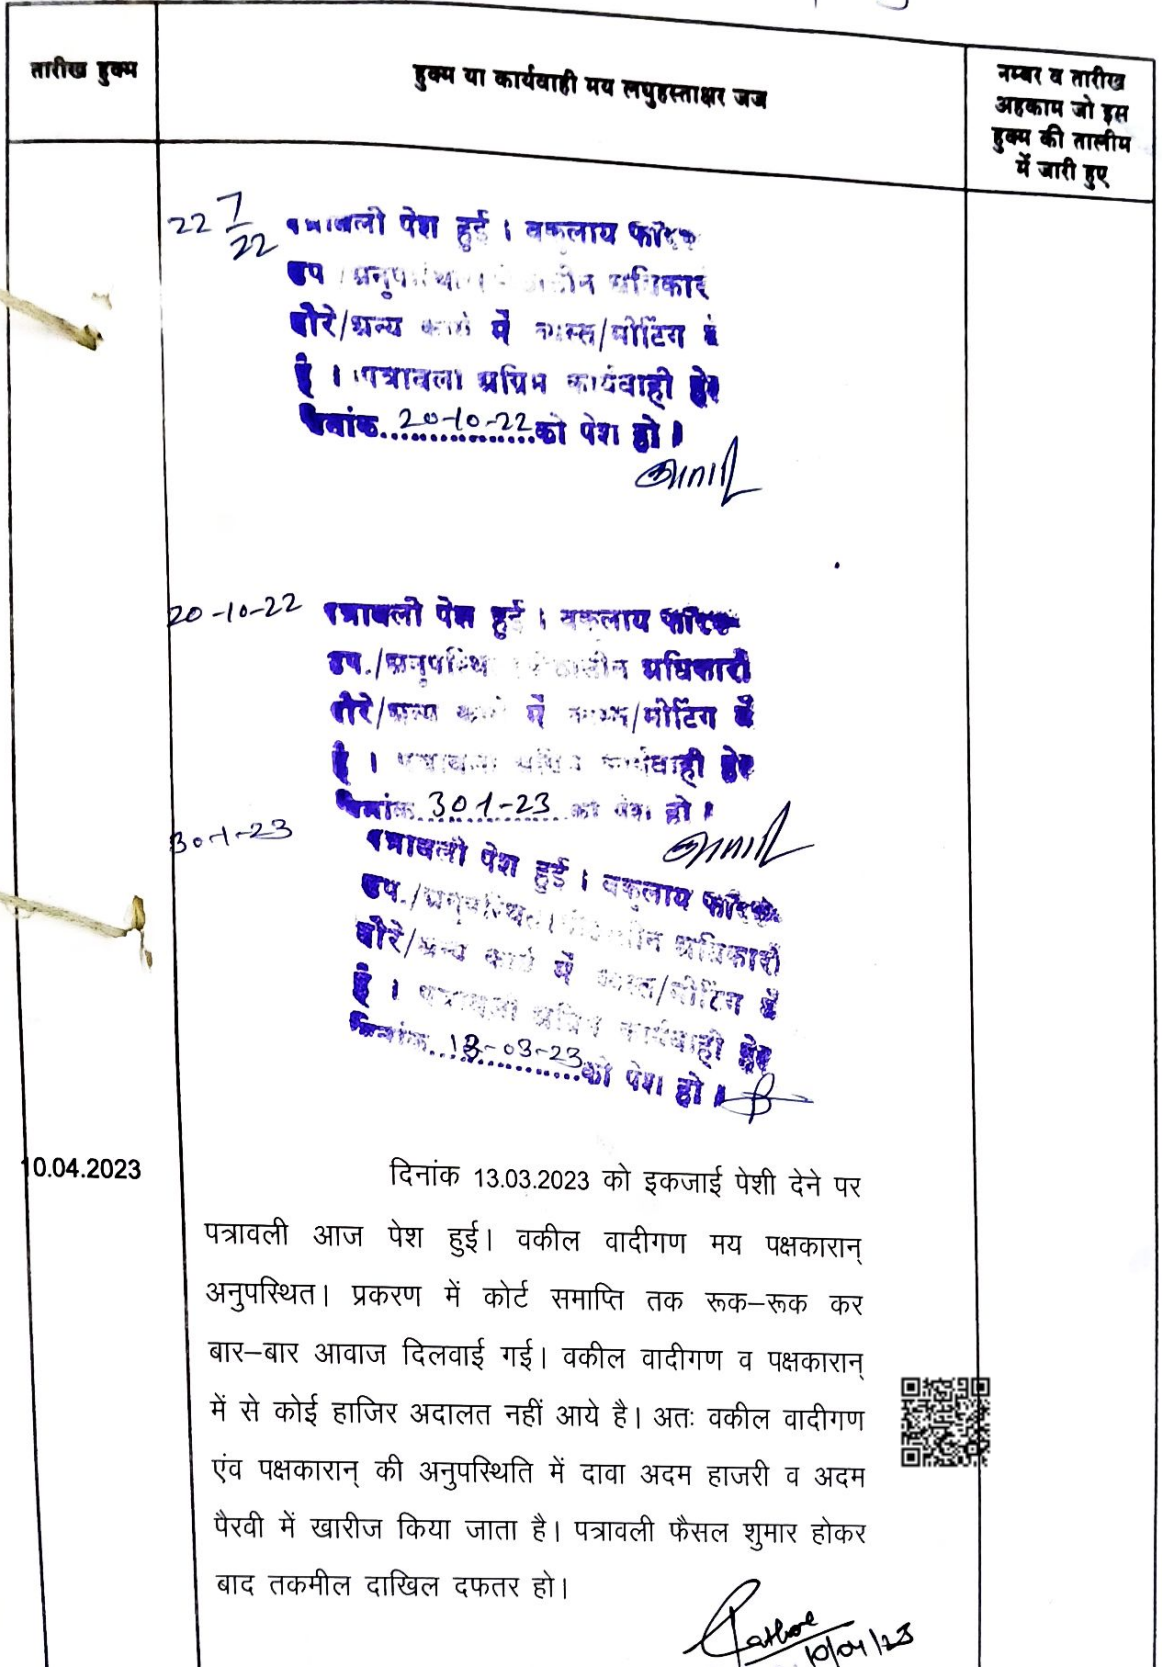 तारीख हुक्म
हुक्म या कार्यवाही मय लघुहस्ताक्षर जज
नम्बर व तारीख
अहकाम जो इस
हुक्म की तालीम
में जारी हुए
22 7/22
पत्रावली पेश हुई । वकलाय फरिक
उप अधिकारी
दौरे/अन्य कार्य में व्यस्त/मीटिंग में
है । पत्रावली अग्रिम कार्यवाही हेतु
दिनांक 20-10-22 को पेश हो ।
20-10-22
पत्रावली पेश हुई । वकलाय फरिक
उप./अनुपस्थित अधिकारी
दौरे/अन्य कार्य में व्यस्त/मीटिंग में
है । पत्रावली अग्रिम कार्यवाही हेतु
दिनांक 30 1-23 को पेश हो ।
30-1-23
पत्रावली पेश हुई । वकलाय फरिक
उप./अनुपस्थित अधिकारी
दौरे/अन्य कार्य में व्यस्त/मीटिंग में
है । पत्रावली अग्रिम कार्यवाही हेतु
दिनांक 13-03-23 को पेश हो ।
10.04.2023
दिनांक 13.03.2023 को इकजाई पेशी देने पर
पत्रावली आज पेश हुई। वकील वादीगण मय पक्षकारान्
अनुपस्थित। प्रकरण में कोर्ट समाप्ति तक रूक–रूक कर
बार–बार आवाज दिलवाई गई। वकील वादीगण व पक्षकारान्
में से कोई हाजिर अदालत नहीं आये है। अतः वकील वादीगण
एंव पक्षकारान् की अनुपस्थिति में दावा अदम हाजरी व अदम
पैरवी में खारीज किया जाता है। पत्रावली फैसल शुमार होकर
बाद तकमील दाखिल दफतर हो।
10/04/23